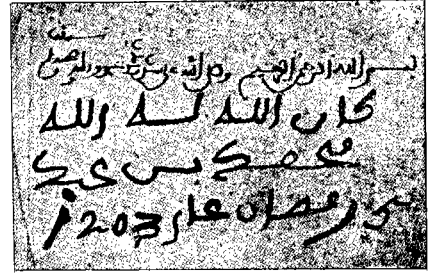 بسم الله الرحمن الرحيم وصلى الله على
كان الله له الله
محمد بن عبد
رمضان عام 1203